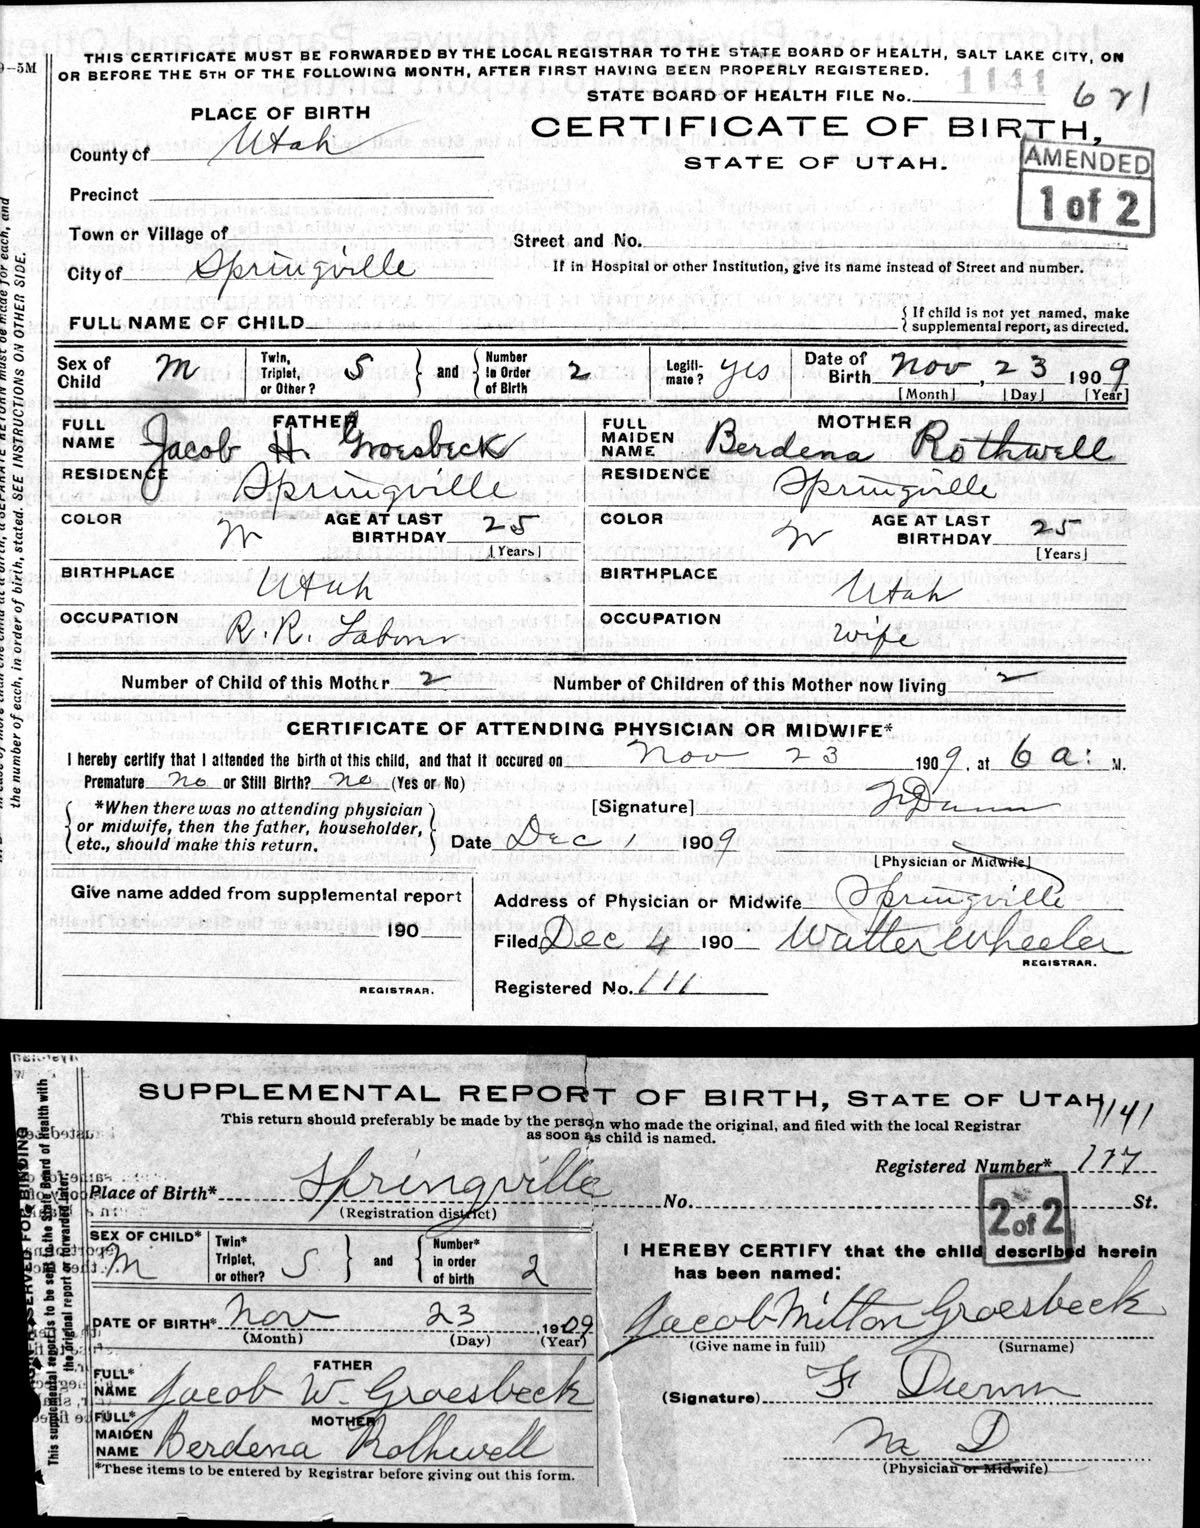 9-5M
THIS CERTIFICATE MUST BE FORWARDED BY THE LOCAL REGISTRAR TO THE STATE BOARD OF HEALTH, SALT LAKE CITY, ON
OR BEFORE THE 5TH OF THE FOLLOWING MONTH, AFTER FIRST HAVING BEEN PROPERLY REGISTERED.
STATE BOARD OF HEALTH FILE No. 1141 621
PLACE OF BIRTH
CERTIFICATE OF BIRTH,
STATE OF UTAH.
AMENDED
1 of 2
County of Utah
Precinct
Town or Village of
Street and No.
City of Springville
If in Hospital or other Institution, give its name instead of Street and number.
FULL NAME OF CHILD
{ If child is not yet named, make
supplemental report, as directed.
Sex of Child M Twin, Triplet, or Other? S } and { Number in Order of Birth 2 Legitimate? yes Date of Birth Nov, 23 1909
[Month] [Day] [Year]
FATHER
FULL NAME Jacob H. Groesbeck
RESIDENCE Springville
COLOR W AGE AT LAST BIRTHDAY 25
[Years]
BIRTHPLACE Utah
OCCUPATION R.R. Labour
MOTHER
FULL MAIDEN NAME Berdena Rothwell
RESIDENCE Springville
COLOR W AGE AT LAST BIRTHDAY 25
[Years]
BIRTHPLACE Utah
OCCUPATION wife
Number of Child of this Mother 2 Number of Children of this Mother now living 2
CERTIFICATE OF ATTENDING PHYSICIAN OR MIDWIFE*
I hereby certify that I attended the birth of this child, and that it occured on Nov 23 1909, at 6 a: M.
Premature no or Still Birth? no (Yes or No)
{ *When there was no attending physician
or midwife, then the father, householder,
etc., should make this return. }
[Signature] F Dunn
Date Dec 1 1909
[Physician or Midwife]
Give name added from supplemental report
190
REGISTRAR.
Address of Physician or Midwife Springville
Filed Dec 4 190 Walter Wheeler
REGISTRAR.
Registered No. 111
the number of each, in order of birth, stated. SEE INSTRUCTIONS ON OTHER SIDE.
SUPPLEMENTAL REPORT OF BIRTH, STATE OF UTAH
1141
This return should preferably be made by the person who made the original, and filed with the local Registrar
as soon as child is named.
Registered Number* 177
Place of Birth* Springville No. St.
(Registration district)
2 of 2
SEX OF CHILD* M Twin* Triplet, or other? S } and { Number* in order of birth 2
DATE OF BIRTH* Nov 23, 1909
(Month) (Day) (Year)
FATHER
FULL* NAME Jacob W. Groesbeck
MOTHER
FULL* MAIDEN NAME Berdena Rothwell
*These items to be entered by Registrar before giving out this form.
I HEREBY CERTIFY that the child described herein
has been named:
Jacob Milton Groesbeck
(Give name in full) (Surname)
(Signature) F Dunn
M D
(Physician or Midwife)
This supplemental report is to be sent to the State Board of Health with
the original report or forwarded later.